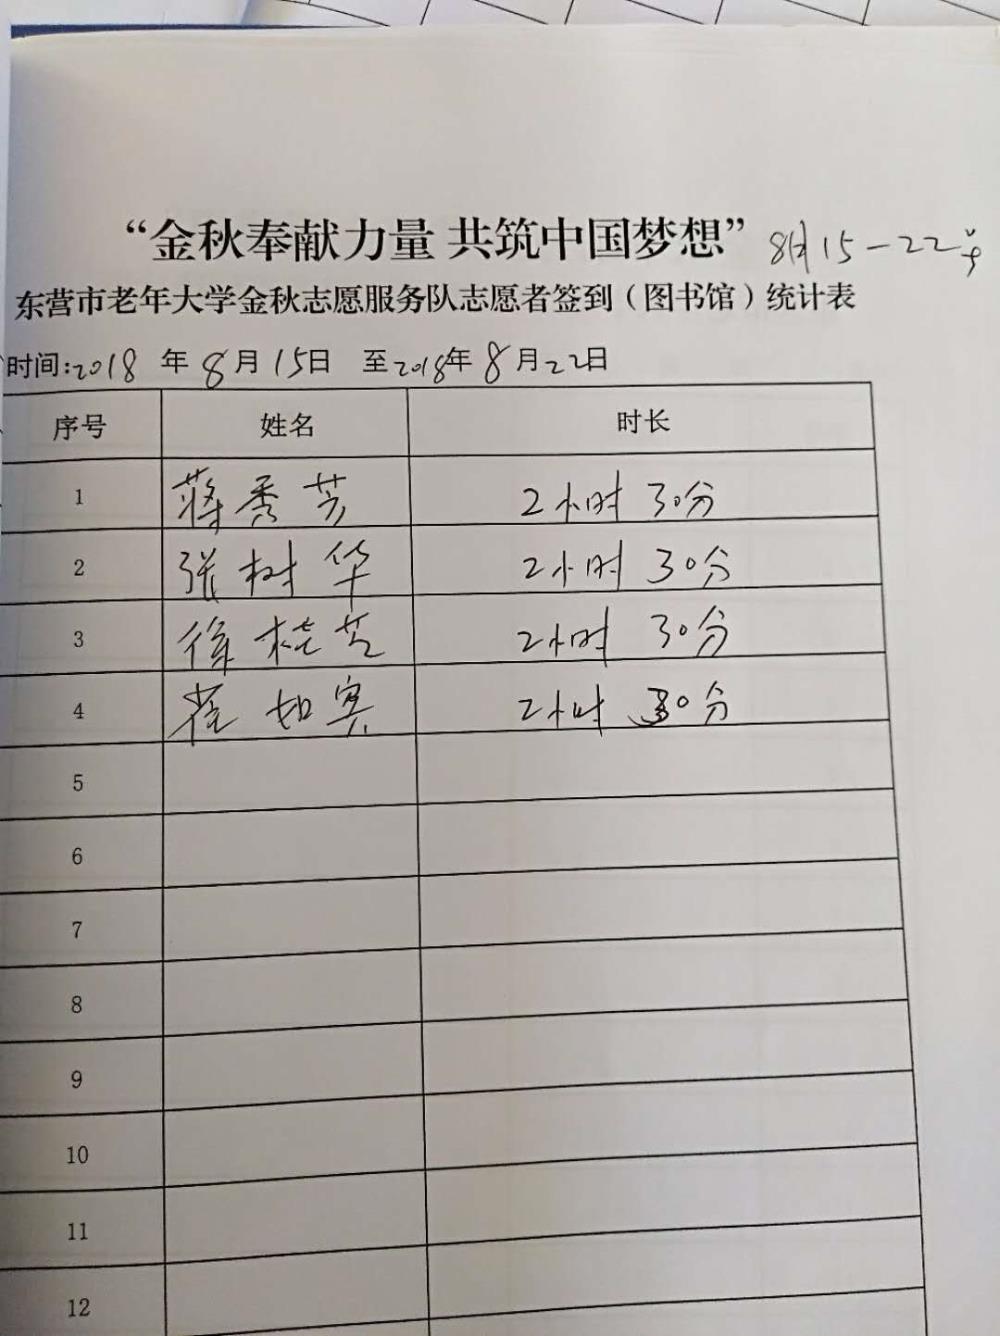 “金秋奉献力量 共筑中国梦想” 8月15-22号
东营市老年大学金秋志愿服务队志愿者签到（图书馆）统计表
时间:2018 年 8月15日 至2018年8月22日
序号 姓名 时长
1 蒋秀芳 2小时30分
2 张树华 2小时30分
3 徐桂芝 2小时30分
4 如宾 2小时30分
5
6
7
8
9
10
11
12